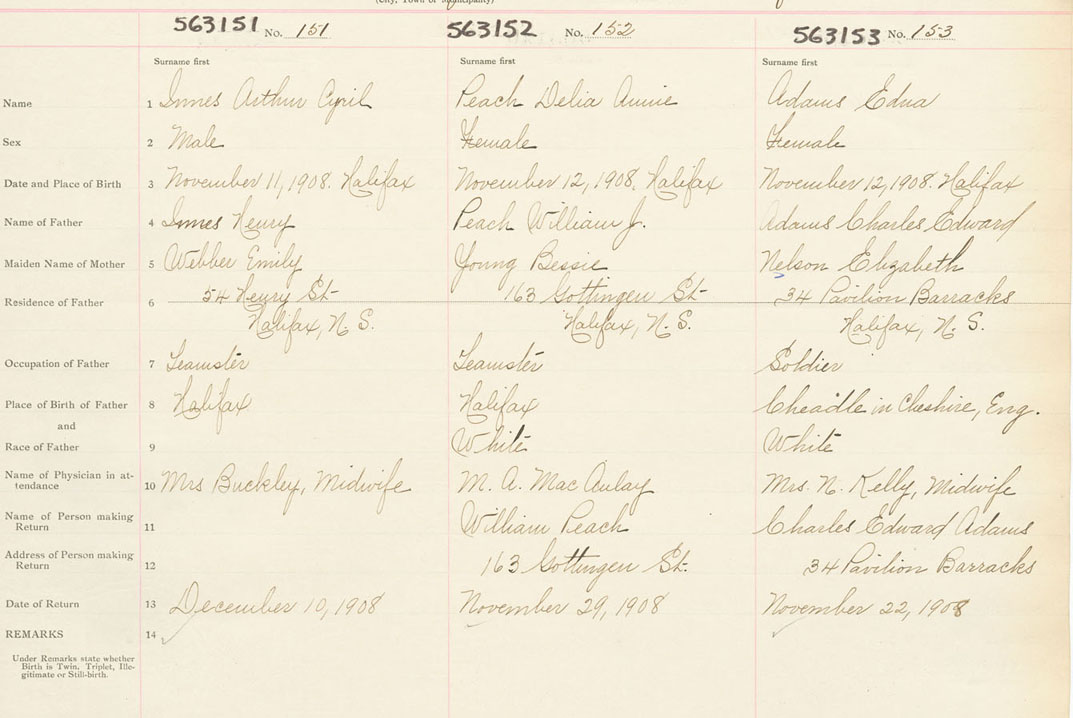 (City, Town or Municipality)
563151 No. 151 563152 No. 152 563153 No. 153
Surname first Surname first Surname first
Name 1 Innes Arthur Cyril Peach Delia Annie Adams Edna
Sex 2 Male Female Female
Date and Place of Birth 3 November 11, 1908. Halifax November 12, 1908. Halifax November 12, 1908. Halifax
Name of Father 4 Innes Henry Peach William J. Adams Charles Edward
Maiden Name of Mother 5 Webber Emily Young Bessie Nelson Elizabeth
Residence of Father 6 54 Henry St- 163 Gottingen St- 34 Pavilion Barracks
Halifax, N. S. Halifax, N. S. Halifax, N. S.
Occupation of Father 7 Teamster Teamster Soldier
Place of Birth of Father 8 Halifax Halifax Cheadle in Cheshire, Eng.
and
Race of Father 9 White White
Name of Physician in at-
tendance 10 Mrs Buckley, Midwife M. A. MacAulay Mrs. N. Kelly, Midwife
Name of Person making
Return 11 William Peach Charles Edward Adams
Address of Person making
Return 12 163 Gottingen St. 34 Pavilion Barracks
Date of Return 13 December 10, 1908 November 29, 1908 November 22, 1908
REMARKS 14
Under Remarks state whether
Birth is Twin, Triplet, Ille-
gitimate or Still-birth.